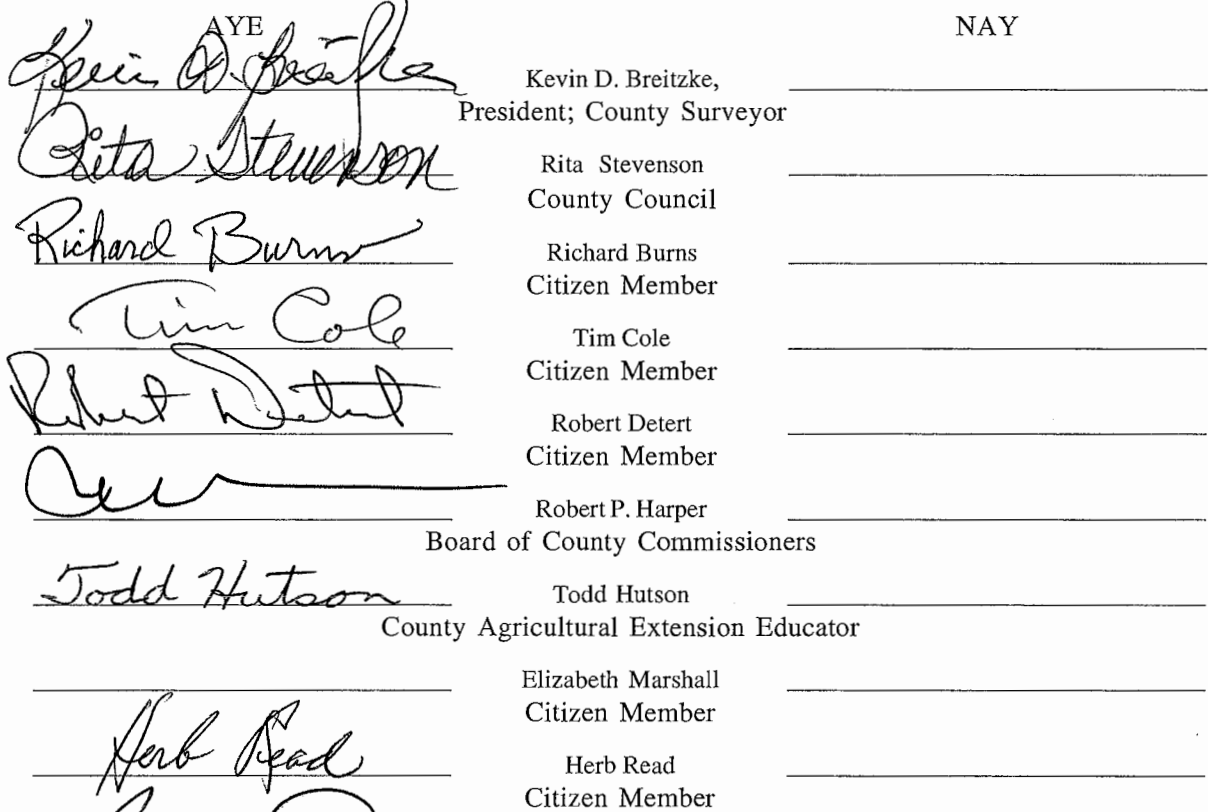 AYE NAY
Kevin D. Breitzke Kevin D. Breitzke,
President; County Surveyor
Rita Stevenson Rita Stevenson
County Council
Richard Burns Richard Burns
Citizen Member
Tim Cole Tim Cole
Citizen Member
Robert Detert Robert Detert
Citizen Member
Robert P. Harper
Board of County Commissioners
Todd Hutson Todd Hutson
County Agricultural Extension Educator
Elizabeth Marshall
Citizen Member
Herb Read Herb Read
Citizen Member